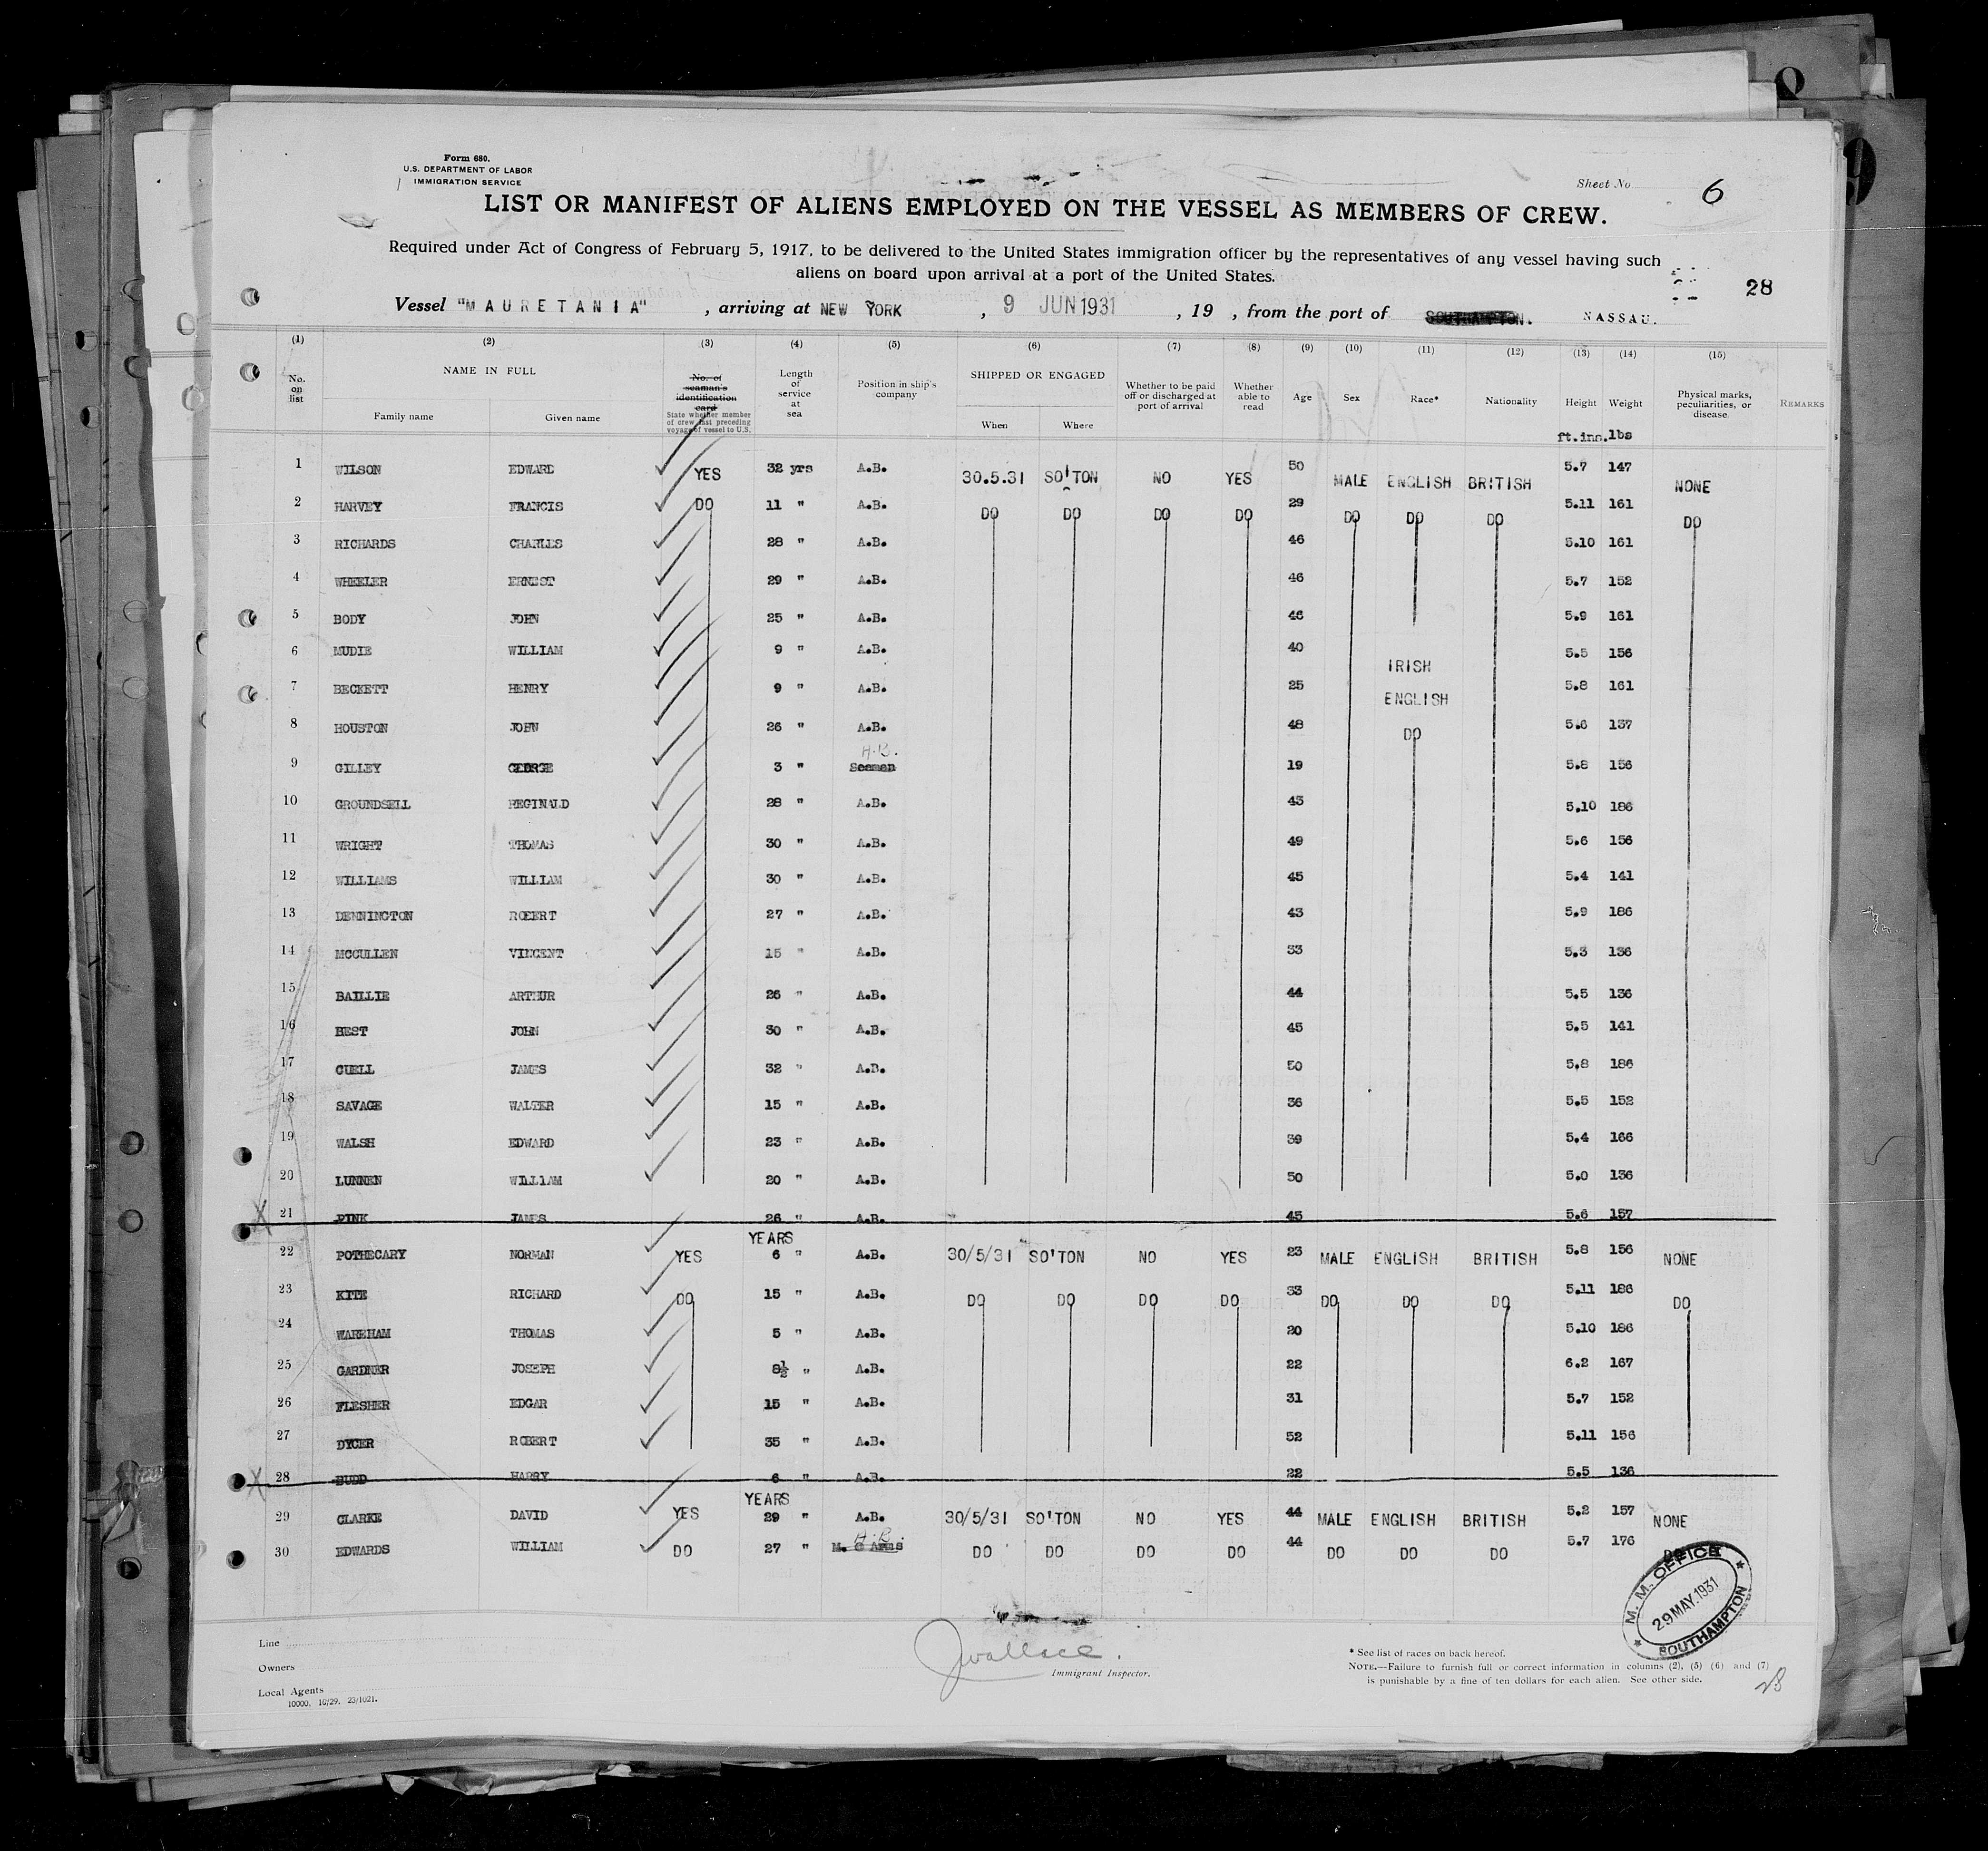 Form 680.
U.S. DEPARTMENT OF LABOR
IMMIGRATION SERVICE
Sheet No 6
LIST OR MANIFEST OF ALIENS EMPLOYED ON THE VESSEL AS MEMBERS OF CREW.
Required under Act of Congress of February 5, 1917, to be delivered to the United States immigration officer by the representatives of any vessel having such
aliens on board upon arrival at a port of the United States.
28
Vessel "MAURETANIA" , arriving at NEW YORK , 9 JUN 1931 , 19 , from the port of SOUTHAMPTON. NASSAU.
(1) (2) (3) (4) (5) (6) (7) (8) (9) (10) (11) (12) (13) (14) (15)
No. on list NAME IN FULL Family name Given name No. of seaman's identification card State whether member of crew last preceding voyage of vessel to U.S. Length of service at sea Position in ship's company SHIPPED OR ENGAGED When Where Whether to be paid off or discharged at port of arrival Whether able to read Age Sex Race* Nationality Height Weight Physical marks, peculiarities, or disease REMARKS
ft.ins. lbs
1 WILSON EDWARD YES 32 yrs A.B. 30.5.31 SO'TON NO YES 50 MALE ENGLISH BRITISH 5.7 147 NONE
2 HARVEY FRANCIS DO 11 " A.B. DO DO DO DO 29 DO DO DO 5.11 161 DO
3 RICHARDS CHARLES 28 " A.B. 46 5.10 161
4 WHEELER ERNEST 29 " A.B. 46 5.7 152
5 BODY JOHN 25 " A.B. 46 5.9 161
6 MUDIE WILLIAM 9 " A.B. 40 IRISH 5.5 156
7 BECKETT HENRY 9 " A.B. 25 ENGLISH 5.8 161
8 HOUSTON JOHN 26 " A.B. 48 DO 5.6 137
9 GILLEY GEORGE 3 " Seeman A.B. 19 5.8 156
10 GROUNDSELL REGINALD 28 " A.B. 43 5.10 186
11 WRIGHT THOMAS 30 " A.B. 49 5.6 156
12 WILLIAMS WILLIAM 30 " A.B. 45 5.4 141
13 DENNINGTON ROBERT 27 " A.B. 43 5.9 186
14 MCCULLEN VINCENT 15 " A.B. 33 5.3 136
15 BAILLIE ARTHUR 26 " A.B. 44 5.5 136
16 BEST JOHN 30 " A.B. 45 5.5 141
17 CUELL JAMES 32 " A.B. 50 5.8 186
18 SAVAGE WALTER 15 " A.B. 36 5.5 152
19 WALSH EDWARD 23 " A.B. 39 5.4 166
20 LUNNEN WILLIAM 20 " A.B. 50 5.0 136
X 21 PINK JAMES 26 " A.B. 45 5.6 157
22 POTHECARY NORMAN YES YEARS 6 " A.B. 30/5/31 SO'TON NO YES 23 MALE ENGLISH BRITISH 5.8 156 NONE
23 KITE RICHARD DO 15 " A.B. DO DO DO DO 33 DO DO DO 5.11 186 DO
24 WAREHAM THOMAS 5 " A.B. 20 5.10 186
25 GARDNER JOSEPH 8½ " A.B. 22 6.2 167
26 FLESHER EDGAR 15 " A.B. 31 5.7 152
27 DYCER ROBERT 35 " A.B. 52 5.11 156
X 28 BUDD HARRY 6 " A.B. 22 5.5 136
29 CLARKE DAVID YES YEARS 29 " A.B. 30/5/31 SO'TON NO YES 44 MALE ENGLISH BRITISH 5.2 157 NONE
30 EDWARDS WILLIAM DO 27 " M. @ Arms A.B. DO DO DO DO 44 DO DO DO 5.7 176 DO
M. M. OFFICE
29 MAY. 1931
SOUTHAMPTON
Line
Owners
Local Agents
10000. 10/29. 23/1021.
JWallace.
Immigrant Inspector.
* See list of races on back hereof.
NOTE.—Failure to furnish full or correct information in columns (2), (5) (6) and (7)
is punishable by a fine of ten dollars for each alien. See other side.